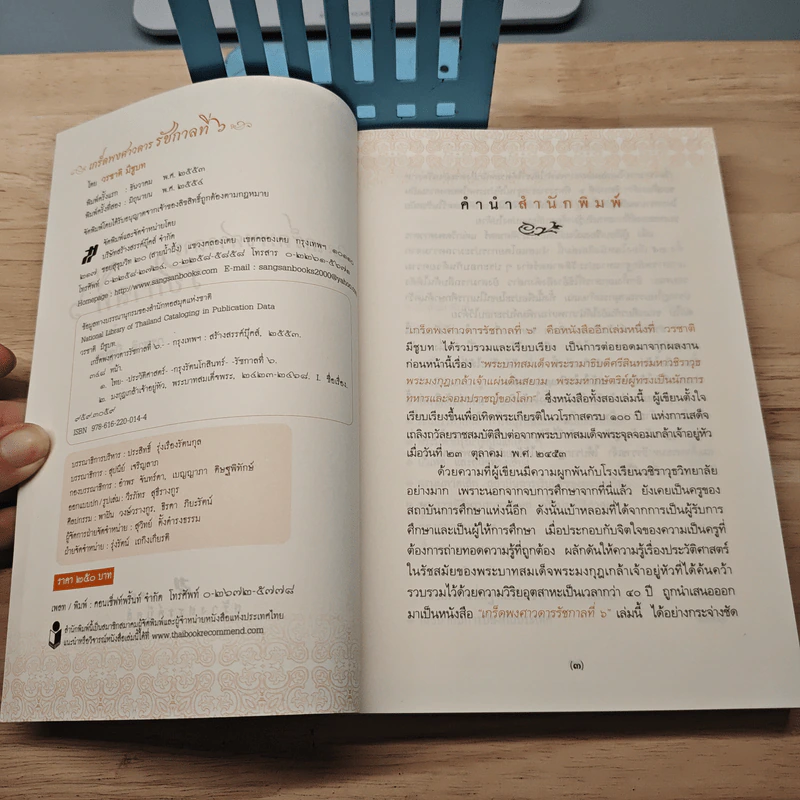 เกร็ดพงศาวดาร รัชกาลที่ ๖
โดย วรชาติ มีชูบท
พิมพ์ครั้งแรก : ธันวาคม พ.ศ. ๒๕๕๓
พิมพ์ครั้งที่สอง : มิถุนายน พ.ศ. ๒๕๕๔
จัดพิมพ์โดยได้รับอนุญาตจากเจ้าของลิขสิทธิ์ถูกต้องตามกฎหมาย
จัดพิมพ์และจัดจำหน่ายโดย
บริษัทสร้างสรรค์บุ๊คส์ จำกัด
๒๑๗ ซอยสุขุมวิท ๒๐ (สายน้ำผึ้ง) แขวงคลองเตย เขตคลองเตย กรุงเทพฯ
โทรศัพท์ ๐-๒๒๕๘-๒๗๒๘, ๐-๒๒๕๘-๕๘๕๘ โทรสาร
Homepage : http://www.sangsanbooks.com E-mail : sangsanbooks2000@yahoo.com
ข้อมูลทางบรรณานุกรมของสำนักหอสมุดแห่งชาติ
National Library of Thailand Cataloging in Publication Data
วรชาติ มีชูบท.
เกร็ดพงศาวดารรัชกาลที่ ๖.-- กรุงเทพฯ : สร้างสรรค์บุ๊คส์, ๒๕๕๓.
๓๔๘ หน้า.
๑. ไทย--ประวัติศาสตร์--กรุงรัตนโกสินทร์--รัชกาลที่ ๖.
๒. มงกุฎเกล้าเจ้าอยู่หัว, พระบาทสมเด็จพระ, ๒๔๒๓-๒๔๖๘. I. ชื่อเรื่อง.
๙๕๙.๓๐๕๙
ISBN 978-616-220-014-4
บรรณาธิการบริหาร : ประสิทธิ์ รุ่งเรืองรัตนกุล
บรรณาธิการ : สุปนีย์ เจริญลาภ
กองบรรณาธิการ : อำพร จันทร์ดา, เบญญาภา คิษฐพิทักษ์
ออกแบบปก / รูปเล่ม : วีรภัทร สุธีรางกูร
ศิลปกรรม : พาฝัน วงษ์วรางกูร, ธีรดา ภิยะรัตน์
ผู้จัดการฝ่ายจัดจำหน่าย : สุวิทย์ ตั้งดำรงธรรม
ฝ่ายจัดจำหน่าย : รุ่งรัตน์ เถกิงเกียรติ
ราคา ๒๕๐ บาท
เพลท / พิมพ์ : คอนเซ็พท์พริ้นท์ จำกัด โทรศัพท์ ๐-๒๖๗๒-๕๗๗๘
สำนักพิมพ์นี้เป็นสมาชิกสมาคมผู้จัดพิมพ์และผู้จำหน่ายหนังสือแห่งประเทศไทย
แนะนำหรือวิจารณ์หนังสือเล่มนี้ได้ที่ www.thaibookrecommend.com
คำนำสำนักพิมพ์
"เกร็ดพงศาวดารรัชกาลที่ ๖" คือหนังสืออีกเล่มหนึ่งที่ วรชาติ
มีชูบท ได้รวบรวมและเรียบเรียง เป็นการต่อยอดมาจากผลงาน
ก่อนหน้านี้เรื่อง "พระบาทสมเด็จพระรามาธิบดีศรีสินทรมหาวชิราวุธ
พระมงกุฎเกล้าเจ้าแผ่นดินสยาม พระมหากษัตริย์ผู้ทรงเป็นนักการ
ทหารและจอมปราชญ์ของโลก" ซึ่งหนังสือทั้งสองเล่มนี้ ผู้เขียนตั้งใจ
เรียบเรียงขึ้นเพื่อเทิดพระเกียรติในวโรกาสครบ ๑๐๐ ปี แห่งการเสด็จ
เถลิงถวัลยราชสมบัติสืบต่อจากพระบาทสมเด็จพระจุลจอมเกล้าเจ้าอยู่หัว
เมื่อวันที่ ๒๓ ตุลาคม พ.ศ. ๒๔๕๓
ด้วยความที่ผู้เขียนมีความผูกพันกับโรงเรียนวชิราวุธวิทยาลัย
อย่างมาก เพราะนอกจากจบการศึกษาจากที่นี่แล้ว ยังเคยเป็นครูของ
สถาบันการศึกษาแห่งนี้อีก ดังนั้นเบ้าหลอมที่ได้จากการเป็นผู้รับการ
ศึกษาและเป็นผู้ให้การศึกษา เมื่อประกอบกับจิตใจของความเป็นครูที่
ต้องการถ่ายทอดความรู้ที่ถูกต้อง ผลักดันให้ความรู้เรื่องประวัติศาสตร์
ในรัชสมัยของพระบาทสมเด็จพระมงกุฎเกล้าเจ้าอยู่หัวที่ได้ค้นคว้า
รวบรวมไว้ด้วยความวิริยอุตสาหะเป็นเวลากว่า ๔๐ ปี ถูกนำเสนอออก
มาเป็นหนังสือ "เกร็ดพงศาวดารรัชกาลที่ ๖" เล่มนี้ ได้อย่างกระจ่างชัด
(๓)